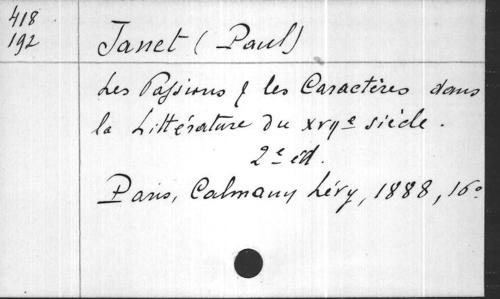 418
192
Janet (Paul)
Les Passions & les Caractères dans
la Littérature du XVIIe siècle.
2e éd.
Paris, Calmann Lévy, 1888, 16o